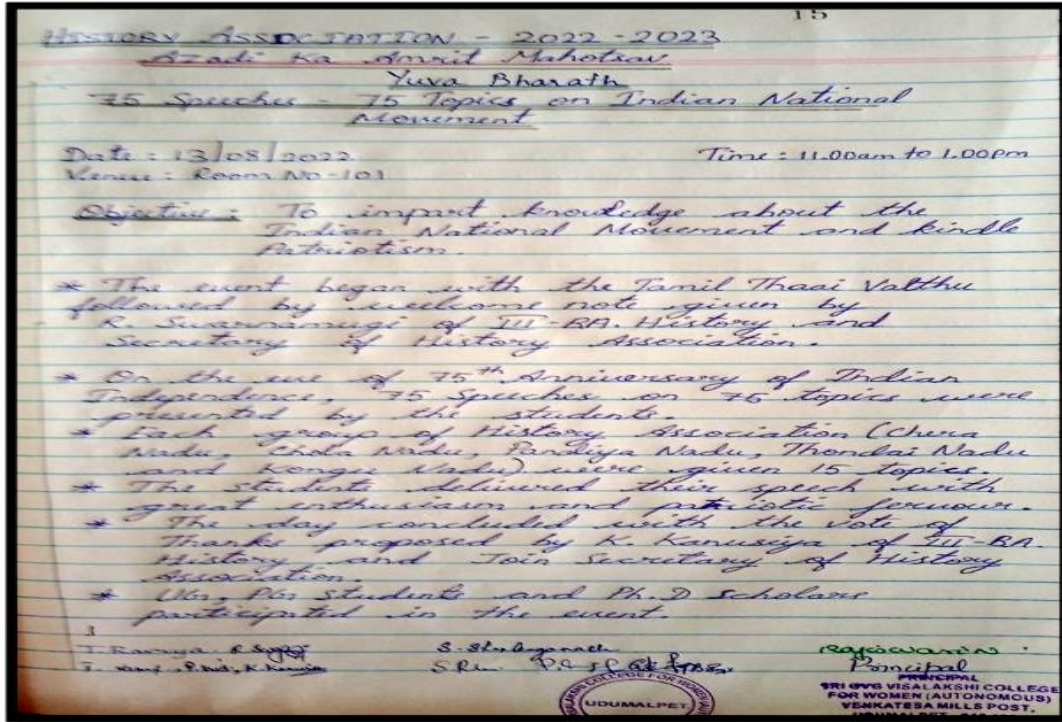 15
HISTORY ASSOCIATION - 2022-2023
Azadi Ka Amrit Mahotsav
Yuva Bharath
75 Speeches - 75 Topics on Indian National
Movement
Date : 13/08/2022
Time : 11.00am to 1.00pm
Venue : Room No-101
Objective : To impart knowledge about the
Indian National Movement and kindle
Patriotism.
* The event began with the Tamil Thaai Valthu
followed by welcome note given by
R. Swarnamugi of III-BA. History and
Secretary of History Association.
* On the eve of 75th Anniversary of Indian
Independence, 75 Speeches on 75 topics were
presented by the students.
* Each group of History Association (Chera
Nadu, Chola Nadu, Pandiya Nadu, Thondai Nadu
and Kongu Nadu) were given 15 topics.
* The students delivered their speech with
great enthusiasm and patriotic fervour.
* The day concluded with the vote of
Thanks proposed by K. Kanusiya of III-BA
History and Join Secretary of History
Association.
* UG, PG Students and Ph.D scholars
participated in the event.
Principal
PRINCIPAL
SRI GVG VISALAKSHI COLLEGE
FOR WOMEN (AUTONOMOUS)
VENKATESA MILLS POST,
UDUMALPET